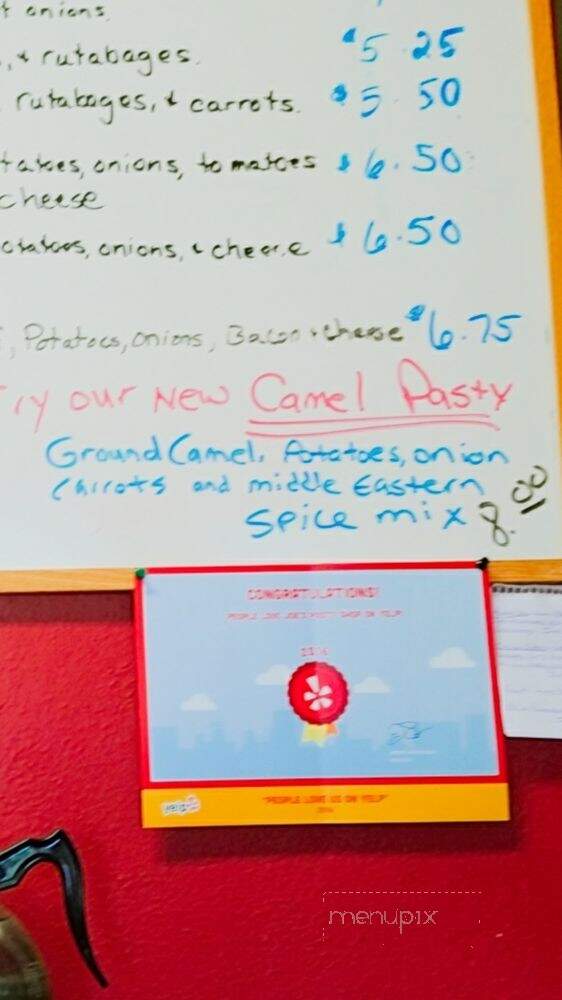 t onions.
, & rutabages. $5.25
rutabages, & carrots. $5.50
tatoes, onions, tomatoes $6.50
cheese
otatoes, onions, & cheese $6.50
, Potatoes, onions, Bacon & cheese $6.75
ry our New Camel Pasty
Ground Camel, Potatoes, onion
Carrots and middle Eastern
Spice mix 8.00
CONGRATULATIONS!
PEOPLE LOVE JOE'S PASTY SHOP ON YELP!
2016
yelp
"PEOPLE LOVE US ON YELP"
2016
menupix